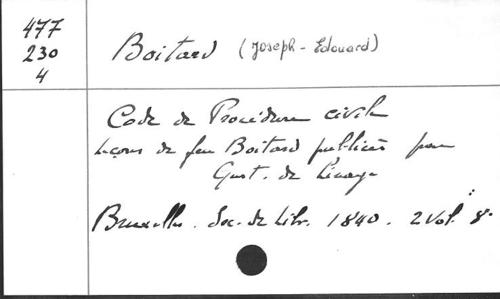 477
230
4
Boitard (Joseph-Edouard)
Code de Procédure civile
Leçons de feu Boitard publiées par
Gust. de Linage
Bruxelles. Soc. de Libr. 1840. 2 vol. 8°